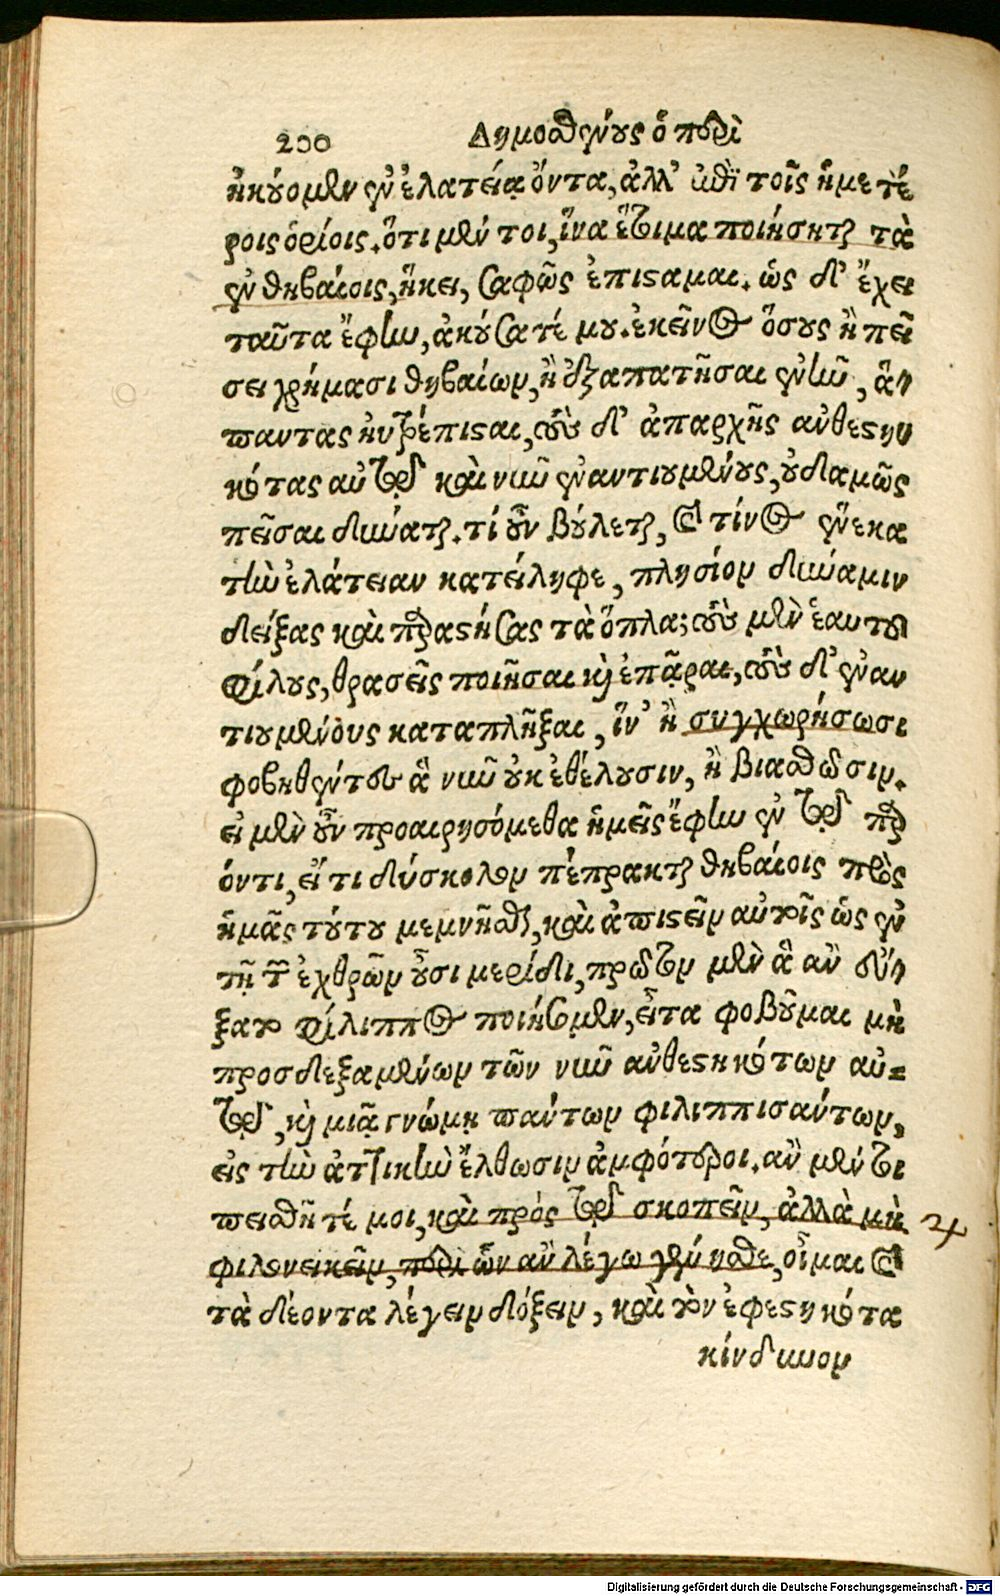 200 Δημοσθένους ὁ περὶ
ἠκούομεν ἐν ἐλατείᾳ ὄντα, ἀλλ' ἐπὶ τοῖς ἡμετέ
ροις ὁρίοις. ὅτι μέν τοι, ἵνα ἕτοιμα ποιήσηται τὰ
ἐν θηβαίοις, ἥκει, σαφῶς ἐπίσταμαι. ὡς δ' ἔχει
ταῦτα ἔφην, ἀκούσατέ μου. ἐκεῖνος ὅσους ἢ πεῖ
σαι χρήμασι θηβαίων, ἢ ἐξαπατῆσαι ἐνῆν, ἅ-
παντας ηὐτρέπισαι, τοὺς δ' ἀπαρχῆς ἀνθεστη
κότας αὐτῷ καὶ νῦν ἐναντιουμένους, οὐδαμῶς
πεῖσαι δύναται. τί οὖν βούλεται, καὶ τίνος ἕνεκα
τὴν ἐλάτειαν κατείληφε, πλησίον δύναμιν
δείξας καὶ παραστήσας τὰ ὅπλα; τοὺς μὲν ἑαυτοῦ
φίλους, θρασεῖς ποιῆσαι καὶ ἐπᾶραι, τοὺς δ' ἐναν
τιουμένους καταπλῆξαι, ἵν' ἢ συγχωρήσωσι
φοβηθέντες ἃ νῦν οὐκ ἐθέλουσιν, ἢ βιασθῶσιν.
εἰ μὲν οὖν προαιρησόμεθα ἡμεῖς ἔφην ἐν τῷ παρ
όντι, εἴ τι δύσκολον πέπρακται θηβαίοις πρὸς
ἡμᾶς τούτου μεμνῆσθαι, καὶ ἀπιστεῖν αὐτοῖς ὡς ἐν
τῇ τῶν ἐχθρῶν οὖσι μερίδι, πρῶτον μὲν ἃ ἂν εὔ-
ξαιτο φίλιππος ποιήσομεν, εἶτα φοβοῦμαι μὴ
προσδεξαμένων τῶν νῦν ἀνθεστηκότων αὐ-
τῷ, καὶ μιᾷ γνώμῃ πάντων φιλιππισάντων,
εἰς τὴν ἀττικὴν ἔλθωσιν ἀμφότεροι. ἂν μέντοι
πεισθῆτέ μοι, καὶ πρὸς τῷ σκοπεῖν, ἀλλὰ μὴ
φιλονεικεῖν, περὶ ὧν ἂν λέγω γένησθε, οἶμαι καὶ
τὰ δέοντα λέγειν δόξειν, καὶ τὸν ἐφεστηκότα
κίνδυνον
Digitalisierung gefördert durch die Deutsche Forschungsgemeinschaft - DFG